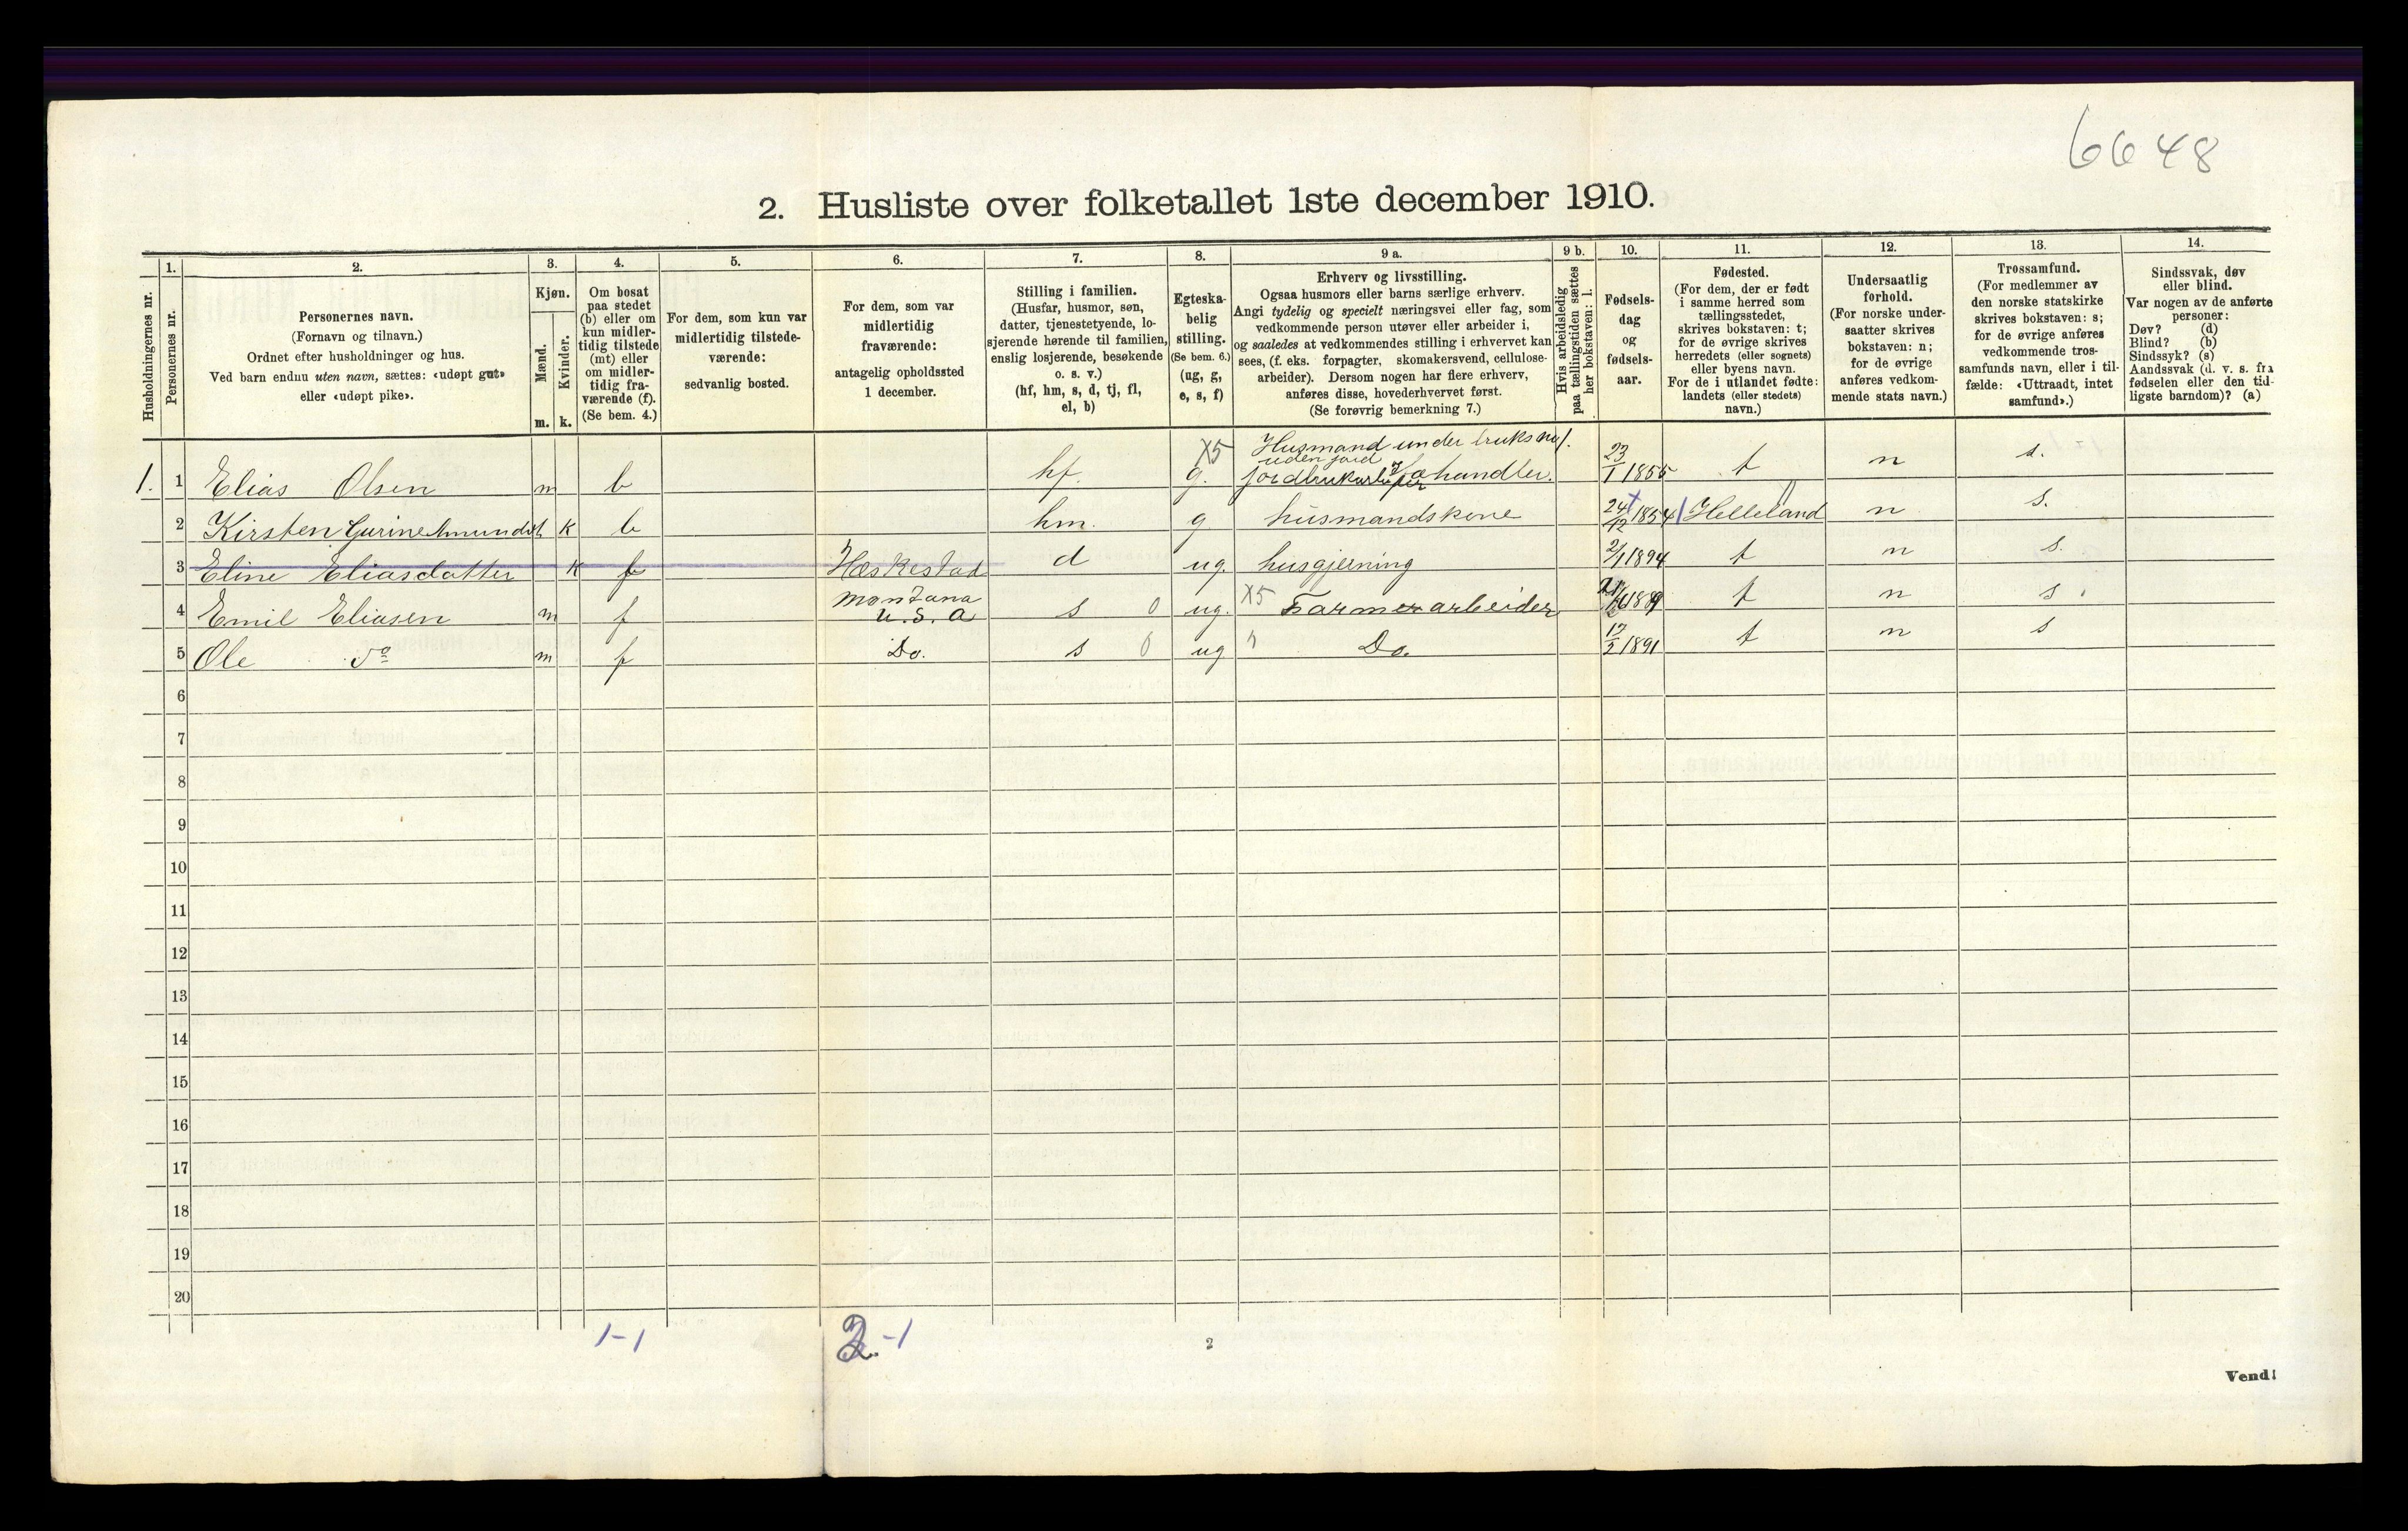 6648
2. Husliste over folketallet 1ste december 1910.
Husholdningernes nr.
1. Personernes nr.
2. Personernes navn.
(Fornavn og tilnavn.)
Ordnet efter husholdninger og hus.
Ved barn endnu uten navn, sættes: «udøpt gut»
eller «udøpt pike».
3. Kjøn.
Mænd. m.
Kvinder. k.
4. Om bosat
paa stedet
(b) eller om
kun midler-
tidig tilstede
(mt) eller
om midler-
tidig fra-
værende (f).
(Se bem. 4.)
5. For dem, som kun var
midlertidig tilstede-
værende:
sedvanlig bosted.
6. For dem, som var
midlertidig
fraværende:
antagelig opholdssted
1 december.
7. Stilling i familien.
(Husfar, husmor, søn,
datter, tjenestetyende, lo-
sjerende hørende til familien,
enslig losjerende, besøkende
o. s. v.)
(hf, hm, s, d, tj, fl,
el, b)
8. Egteska-
belig
stilling.
(Se bem. 6.)
(ug, g,
e, s, f)
9 a. Erhverv og livsstilling.
Ogsaa husmors eller barns særlige erhverv.
Angi tydelig og specielt næringsvei eller fag, som
vedkommende person utøver eller arbeider i,
og saaledes at vedkommendes stilling i erhvervet kan
sees, (f. eks. forpagter, skomakersvend, cellulose-
arbeider). Dersom nogen har flere erhverv,
anføres disse, hovederhvervet først.
(Se forøvrig bemerkning 7.)
9 b. Hvis arbeidsledig
paa tællingstiden sættes
her bokstaven: l.
10. Fødsels-
dag
og
fødsels-
aar.
11. Fødested.
(For dem, der er født
i samme herred som
tællingsstedet,
skrives bokstaven: t;
for de øvrige skrives
herredets (eller sognets)
eller byens navn.
For de i utlandet fødte:
landets (eller stedets)
navn.)
12. Undersaatlig
forhold.
(For norske under-
saatter skrives
bokstaven: n;
for de øvrige
anføres vedkom-
mende stats navn.)
13. Trossamfund.
(For medlemmer av
den norske statskirke
skrives bokstaven: s;
for de øvrige anføres
vedkommende tros-
samfunds navn, eller i til-
fælde: «Uttraadt, intet
samfund».)
14. Sindssvak, døv
eller blind.
Var nogen av de anførte
personer:
Døv? (d)
Blind? (b)
Sindssyk? (s)
Aandssvak (d. v. s. fra
fødselen eller den tid-
ligste barndom)? (a)
X5 Husmand under bruks no 1.
uden jord
1. 1 Elias Olsen m b hf. g. fæhandler. 23/1 1855 t n s.
2 Kirsten Gurine Amundsd k b hm. g husmandskone 24/12 1854 Helleland n s.
3 Eline Eliasdatter k f Hæskestad d ug. husgjerning 2/1 1894 t n s.
4 Emil Eliasen m f Montana
U.S.A s 0 ug. X5 Farmerarbeider 1889 t n s
5 Ole do m f Do. s 0 ug " Do. 1891 t n s
6
7
8
9
10
11
12
13
14
15
16
17
18
19
20
1-1 2-1
2
Vend!